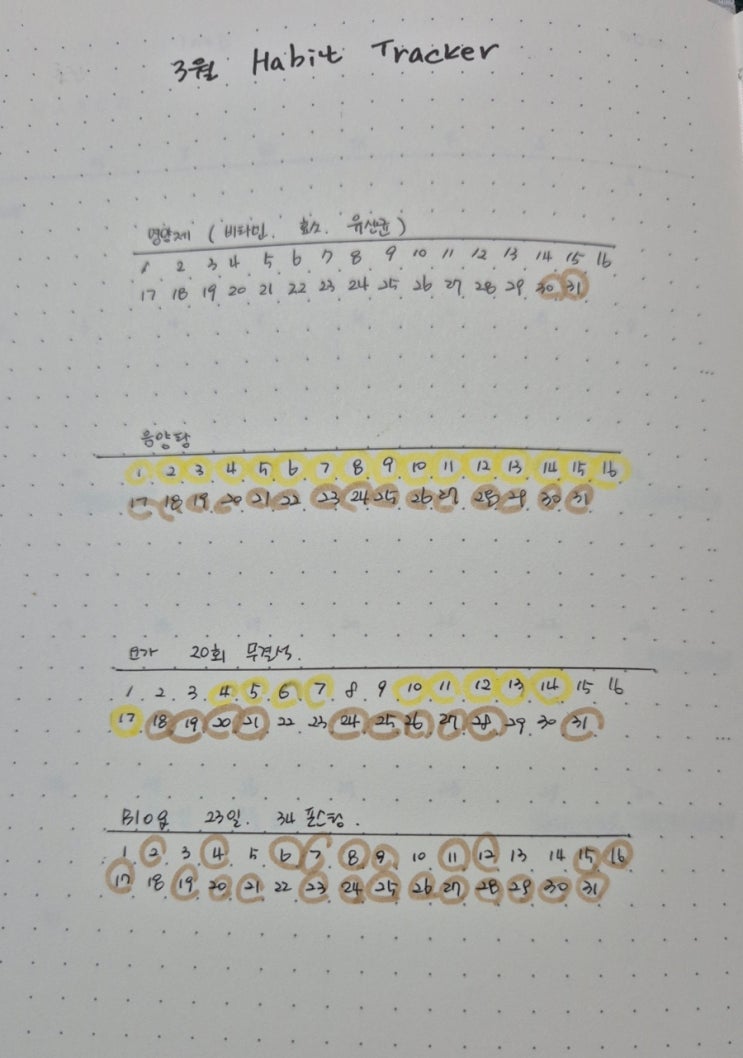 3월 Habit Tracker
영양제 ( 비타민. 효소. 유산균 )
1 2 3 4 5 6 7 8 9 10 11 12 13 14 15 16
17 18 19 20 21 22 23 24 25 26 27 28 29 30 31
음양탕
1 2 3 4 5 6 7 8 9 10 11 12 13 14 15 16
17 18 19 20 21 22 23 24 25 26 27 28 29 30 31
요가 20회 무결석.
1 2 3 4 5 6 7 8 9 10 11 12 13 14 15 16
17 18 19 20 21 22 23 24 25 26 27 28 29 30 31
Blog 23일. 34 포스팅.
1 2 3 4 5 6 7 8 9 10 11 12 13 14 15 16
17 18 19 20 21 22 23 24 25 26 27 28 29 30 31